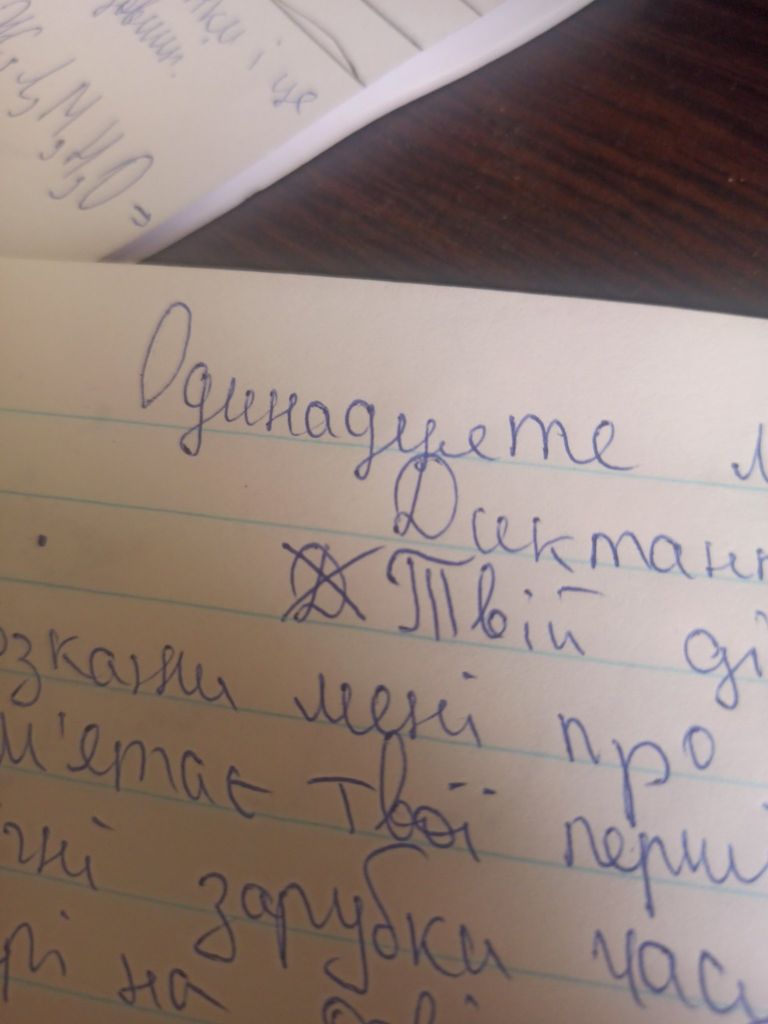 і це
М, Н, О =
Одинадцяте
Диктант
Твій ді
озкажи мені про
м'ятає твої перші
ічні зарубки час
рі на